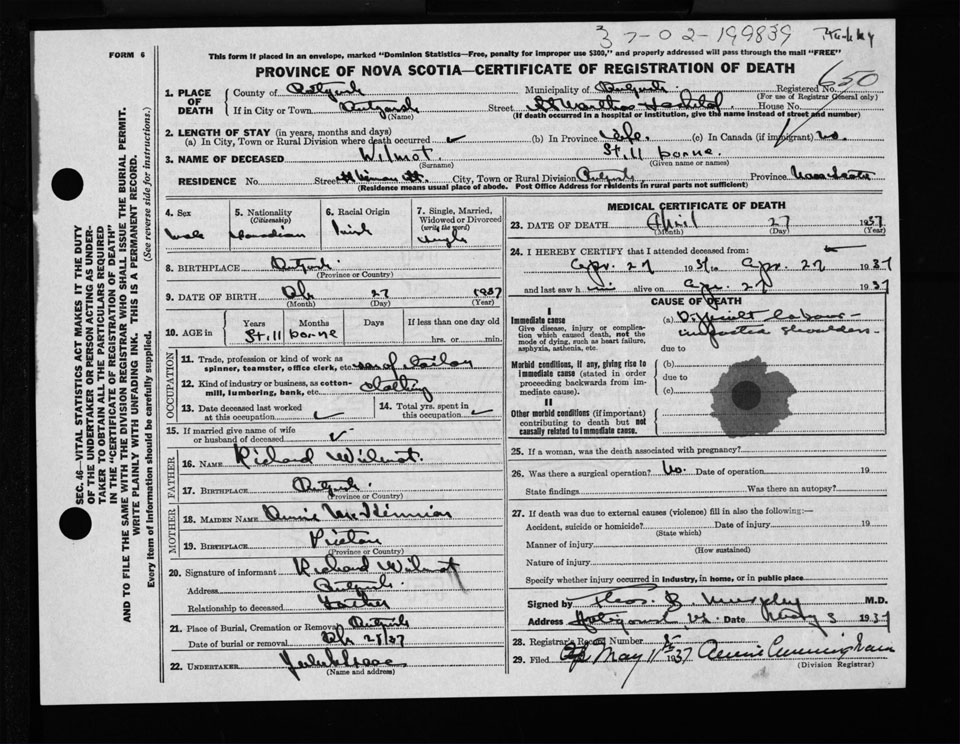 37-02-199839
FORM 6
This form if placed in an envelope, marked "Dominion Statistics—Free, penalty for improper use $300," and properly addressed will pass through the mail "FREE"
PROVINCE OF NOVA SCOTIA—CERTIFICATE OF REGISTRATION OF DEATH
650
1. PLACE OF DEATH
County of
Municipality of
Registered No.
(For use of Registrar General only)
If in City or Town
(Name)
Street St Marthas Hospital House No.
(If death occurred in a hospital or institution, give the name instead of street and number)
2. LENGTH OF STAY (in years, months and days)
(a) In City, Town or Rural Division where death occurred (b) In Province Life. (c) In Canada (if immigrant) no.
3. NAME OF DECEASED Wilmot. Still borne.
(Surname) (Given name or names)
RESIDENCE No. Street St. City, Town or Rural Division Province Nova Scotia
(Residence means usual place of abode. Post Office Address for residents in rural parts not sufficient)
SEC. 46—VITAL STATISTICS ACT MAKES IT THE DUTY
OF THE UNDERTAKER OR PERSON ACTING AS UNDER-
TAKER TO OBTAIN ALL THE PARTICULARS REQUIRED
IN THE "CERTIFICATE OF REGISTRATION OF DEATH"
AND TO FILE THE SAME WITH THE DIVISION REGISTRAR WHO SHALL ISSUE THE BURIAL PERMIT.
WRITE PLAINLY WITH UNFADING INK. THIS IS A PERMANENT RECORD.
Every item of Information should be carefully supplied. (See reverse side for instructions.)
4. Sex
Male
5. Nationality
(Citizenship)
Canadian
6. Racial Origin
Irish
7. Single, Married,
Widowed or Divorced
(write the word)
Single
8. BIRTHPLACE
(Province or Country)
9. DATE OF BIRTH 27 1937
(Month) (Day) (Year)
10. AGE in
Years Months Days If less than one day old
Still borne hrs. or min.
OCCUPATION
11. Trade, profession or kind of work as
spinner, teamster, office clerk, etc. son of tailor
12. Kind of industry or business, as cotton-
mill, lumbering, bank, etc. clothing
13. Date deceased last worked
at this occupation
14. Total yrs. spent in
this occupation
15. If married give name of wife
or husband of deceased
FATHER
16. NAME Richard Wilmot.
17. BIRTHPLACE
(Province or Country)
MOTHER
18. MAIDEN NAME Annie
19. BIRTHPLACE Pictou
(Province or Country)
20. Signature of informant Richard Wilmot
Address
Relationship to deceased Father
21. Place of Burial, Cremation or Removal
Date of burial or removal 28/37
22. UNDERTAKER
(Name and address)
MEDICAL CERTIFICATE OF DEATH
23. DATE OF DEATH April 27 1937
(Month) (Day) (Year)
24. I HEREBY CERTIFY that I attended deceased from:
Apr. 27 1937 to Apr. 27 1937
and last saw h alive on Apr. 27 1937
CAUSE OF DEATH
I
Immediate cause
Give disease, injury or complica-
tion which caused death, not the
mode of dying, such as heart failure,
asphyxia, asthenia, etc.
(a) Difficult labour
impacted shoulders
due to
Morbid conditions, if any, giving rise to
immediate cause (stated in order
proceeding backwards from im-
mediate cause).
(b)
due to
(c)
II
Other morbid conditions (if important)
contributing to death but not
causally related to immediate cause.
25. If a woman, was the death associated with pregnancy?
26. Was there a surgical operation? No. Date of operation 19
State findings Was there an autopsy?
27. If death was due to external causes (violence) fill in also the following:—
Accident, suicide or homicide? Date of injury 19
(State which)
Manner of injury
(How sustained)
Nature of injury
Specify whether injury occurred in industry, in home, or in public place
Signed by Murphy M.D.
Address Date May 3 1937
28. Registrar's Record Number
29. Filed May 11 1937 Annie Cunningham
(Division Registrar)